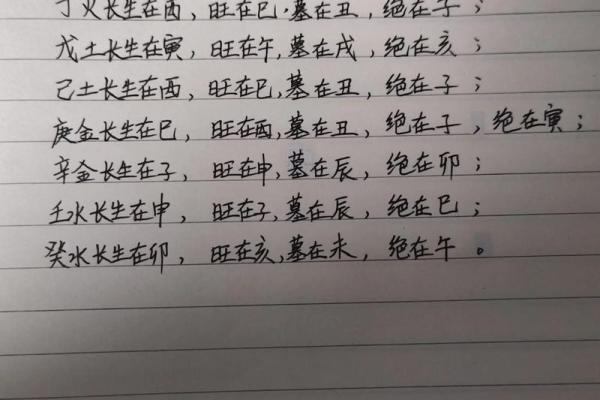 丁火长生在酉，旺在巳，墓在丑，绝在子；
戊土长生在寅，旺在午，墓在戌，绝在亥；
己土长生在酉，旺在巳，墓在丑，绝在子；
庚金长生在巳，旺在酉，墓在丑，绝在子，绝在寅；
辛金长生在子，旺在申，墓在辰，绝在卯；
壬水长生在申，旺在子，墓在辰，绝在巳；
癸水长生在卯，旺在亥，墓在未，绝在午。